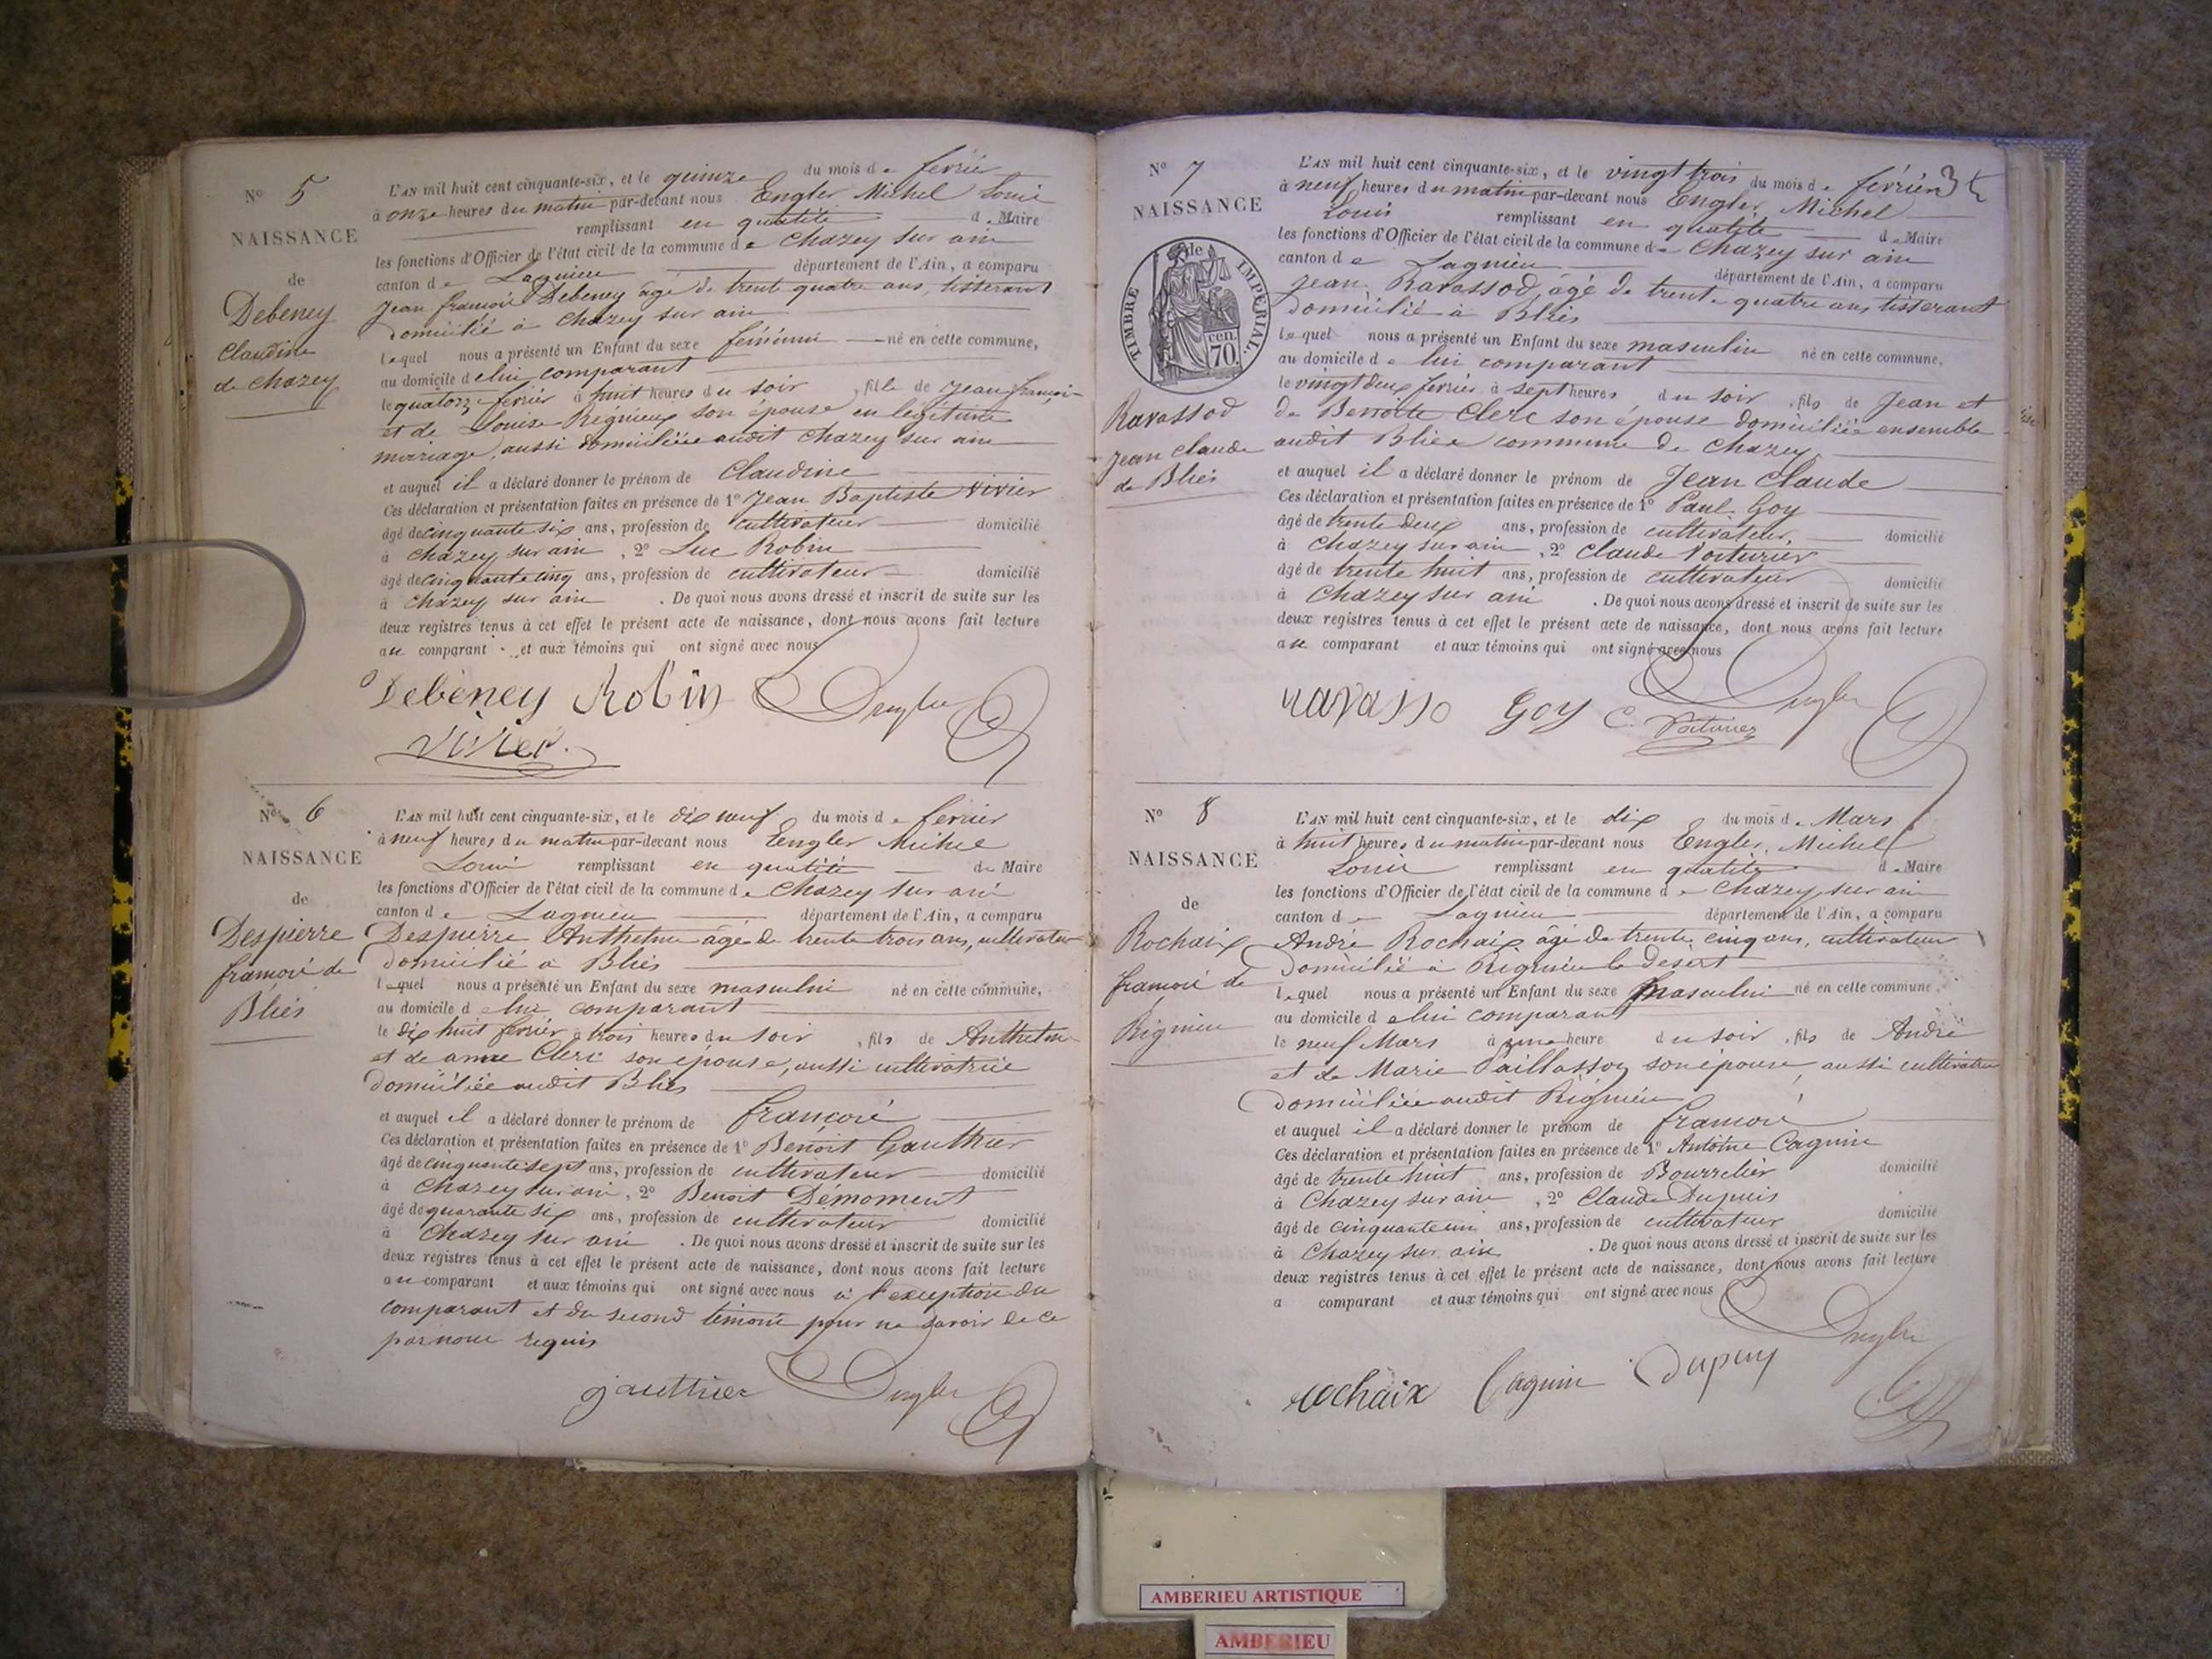 N° 5
NAISSANCE
de
Debeney
Claudine
de Chazey
L'AN mil huit cent cinquante-six, et le quinze du mois de février
à onze heures du matin par-devant nous Engler Michel Louis
remplissant en qualité de Maire
les fonctions d'Officier de l'état civil de la commune de Chazey sur ain
canton de Lagnieu département de l'Ain, a comparu
Jean françois Debeney âgé de trente quatre ans, tisserant
domicilié à Chazey sur ain
lequel nous a présenté un Enfant du sexe féminin né en cette commune,
au domicile de lui comparant
le quatorze février à huit heures du soir, fille de Jean françois
et de Louise Régnieux son épouse en légitime
mariage, aussi domiciliée audit Chazey sur ain
et auquel il a déclaré donner le prénom de Claudine
Ces déclaration et présentation faites en présence de 1° Jean Baptiste Vivier
âgé de cinquante six ans, profession de cultivateur domicilié
à Chazey sur ain, 2° Luc Robin
âgé de cinquante cinq ans, profession de cultivateur domicilié
à Chazey sur ain. De quoi nous avons dressé et inscrit de suite sur les
deux registres tenus à cet effet le présent acte de naissance, dont nous avons fait lecture
au comparant et aux témoins qui ont signé avec nous
Debeney Robin Engler
Vivier.
N° 6
NAISSANCE
de
Despierre
françois de
Bliés
L'AN mil huit cent cinquante-six, et le dix neuf du mois de février
à neuf heures du matin par-devant nous Engler Michel
Louis remplissant en qualité de Maire
les fonctions d'Officier de l'état civil de la commune de Chazey sur ain
canton de Lagnieu département de l'Ain, a comparu
Despierre Anthelme âgé de trente trois ans, cultivateur
domicilié à Bliés
lequel nous a présenté un Enfant du sexe masculin né en cette commune,
au domicile de lui comparant
le dix huit février à trois heures du soir, fils de Anthelme
et de anne Clerc son épouse, aussi cultivatrice
domiciliée audit Bliés
et auquel il a déclaré donner le prénom de françois
Ces déclaration et présentation faites en présence de 1° Benoit Gauthier
âgé de cinquante sept ans, profession de cultivateur domicilié
à Chazey sur ain, 2° Benoit Démoment
âgé de quarante six ans, profession de cultivateur domicilié
à Chazey sur ain. De quoi nous avons dressé et inscrit de suite sur les
deux registres tenus à cet effet le présent acte de naissance, dont nous avons fait lecture
au comparant et aux témoins qui ont signé avec nous à l'exception du
comparant et du second témoin pour ne savoir de ce
par nous requis
gauthier Engler
N° 7
NAISSANCE
de
TIMBRE IMPERIAL.
70 cen.
Ravassod
Jean Claude
de Bliés
L'AN mil huit cent cinquante-six, et le vingt trois du mois de février
à neuf heures du matin par-devant nous Engler Michel
Louis remplissant en qualité de Maire
les fonctions d'Officier de l'état civil de la commune de Chazey sur ain
canton de Lagnieu département de l'Ain, a comparu
Jean Ravassod âgé de trente quatre ans tisserant
domicilié à Bliés
lequel nous a présenté un Enfant du sexe masculin né en cette commune,
au domicile de lui comparant
le vingt deux février à sept heures du soir, fils de Jean et
de Benoite Clerc son épouse domiciliés ensemble
audit Bliés commune de Chazey
et auquel il a déclaré donner le prénom de Jean Claude
Ces déclaration et présentation faites en présence de 1° Paul Goy
âgé de trente deux ans, profession de cultivateur, domicilié
à Chazey sur ain, 2° Claude Voiturier
âgé de trente huit ans, profession de cultivateur domicilié
à Chazey sur ain. De quoi nous avons dressé et inscrit de suite sur les
deux registres tenus à cet effet le présent acte de naissance, dont nous avons fait lecture
au comparant et aux témoins qui ont signé avec nous
ravasso Goy C. Voiturier Engler
N° 8
NAISSANCE
de
Rochaix
françois de
Rignieu
L'AN mil huit cent cinquante-six, et le dix du mois de Mars
à huit heures du matin par-devant nous Engler, Michel
Louis remplissant en qualité de Maire
les fonctions d'Officier de l'état civil de la commune de Chazey sur ain
canton de Lagnieu département de l'Ain, a comparu
André Rochaix âgé de trente cinq ans, cultivateur
domicilié à Rignieu le desert
lequel nous a présenté un Enfant du sexe masculin né en cette commune,
au domicile de lui comparant
le neuf Mars à une heure du soir, fils de André
et de Marie Paillasson son épouse, aussi cultivatrice
domiciliée audit Rignieu
et auquel il a déclaré donner le prénom de françois
Ces déclaration et présentation faites en présence de 1° Antoine Cagnin
âgé de trente huit ans, profession de Bourrelier domicilié
à Chazey sur ain, 2° Claude Dupuis
âgé de cinquante un ans, profession de cultivateur domicilié
à Chazey sur ain. De quoi nous avons dressé et inscrit de suite sur les
deux registres tenus à cet effet le présent acte de naissance, dont nous avons fait lecture
a comparant et aux témoins qui ont signé avec nous
rochaix Cagnin Dupuy Engler
AMBERIEU ARTISTIQUE
AMBERIEU